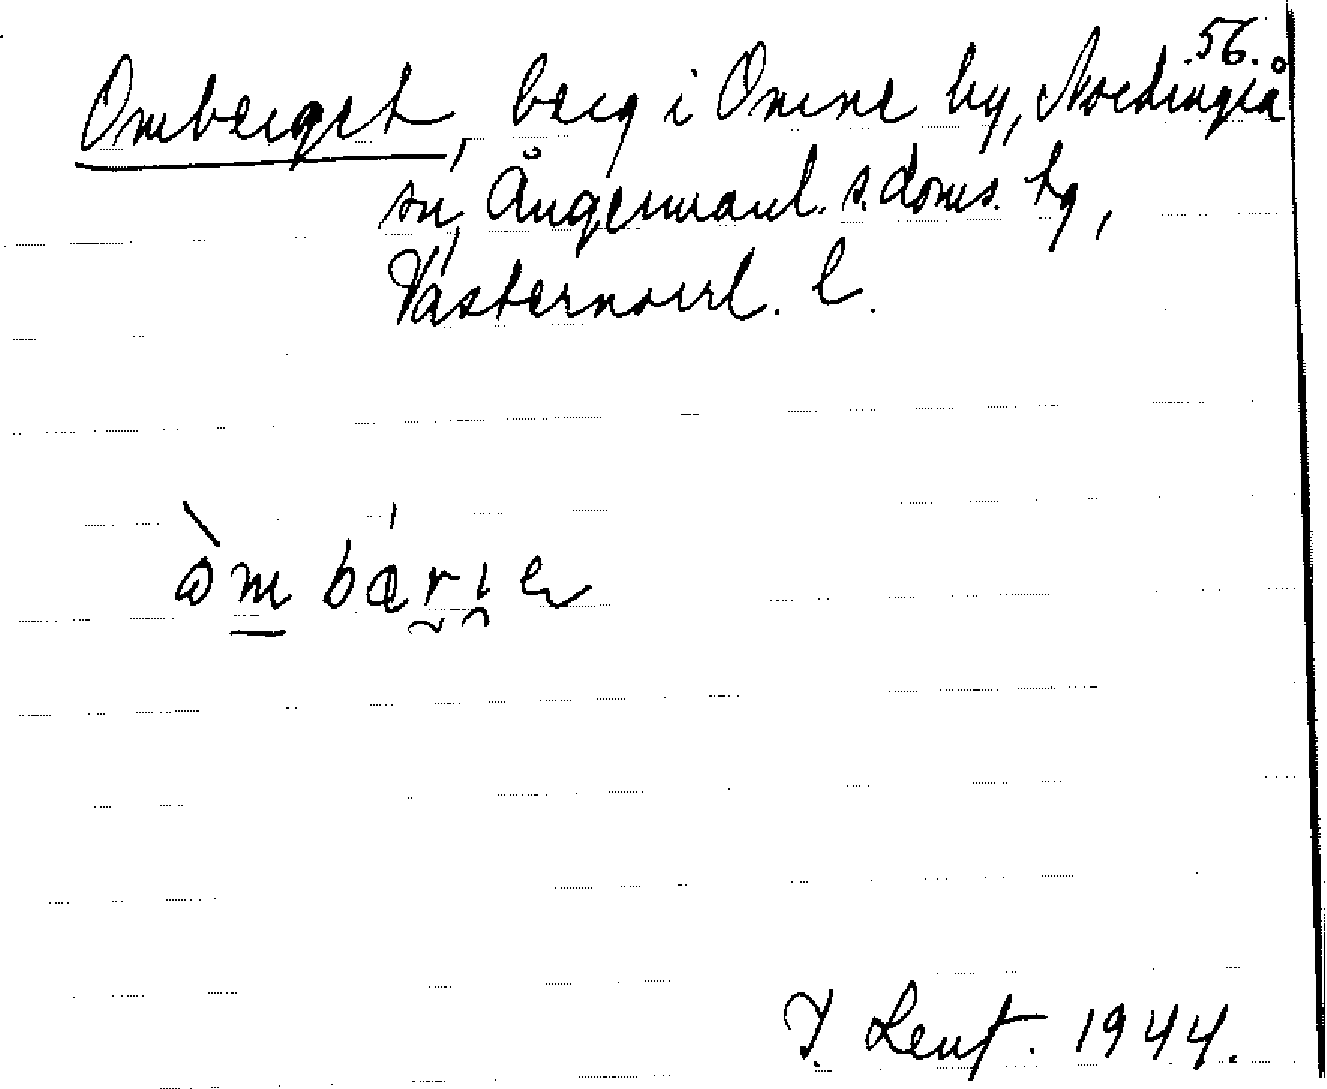 56.
Omberget, berg i Omne by, Nordingrå
sn, Ångermanl. s. doms. hg,
Västernorrl. l.
òmbarıe
1944.